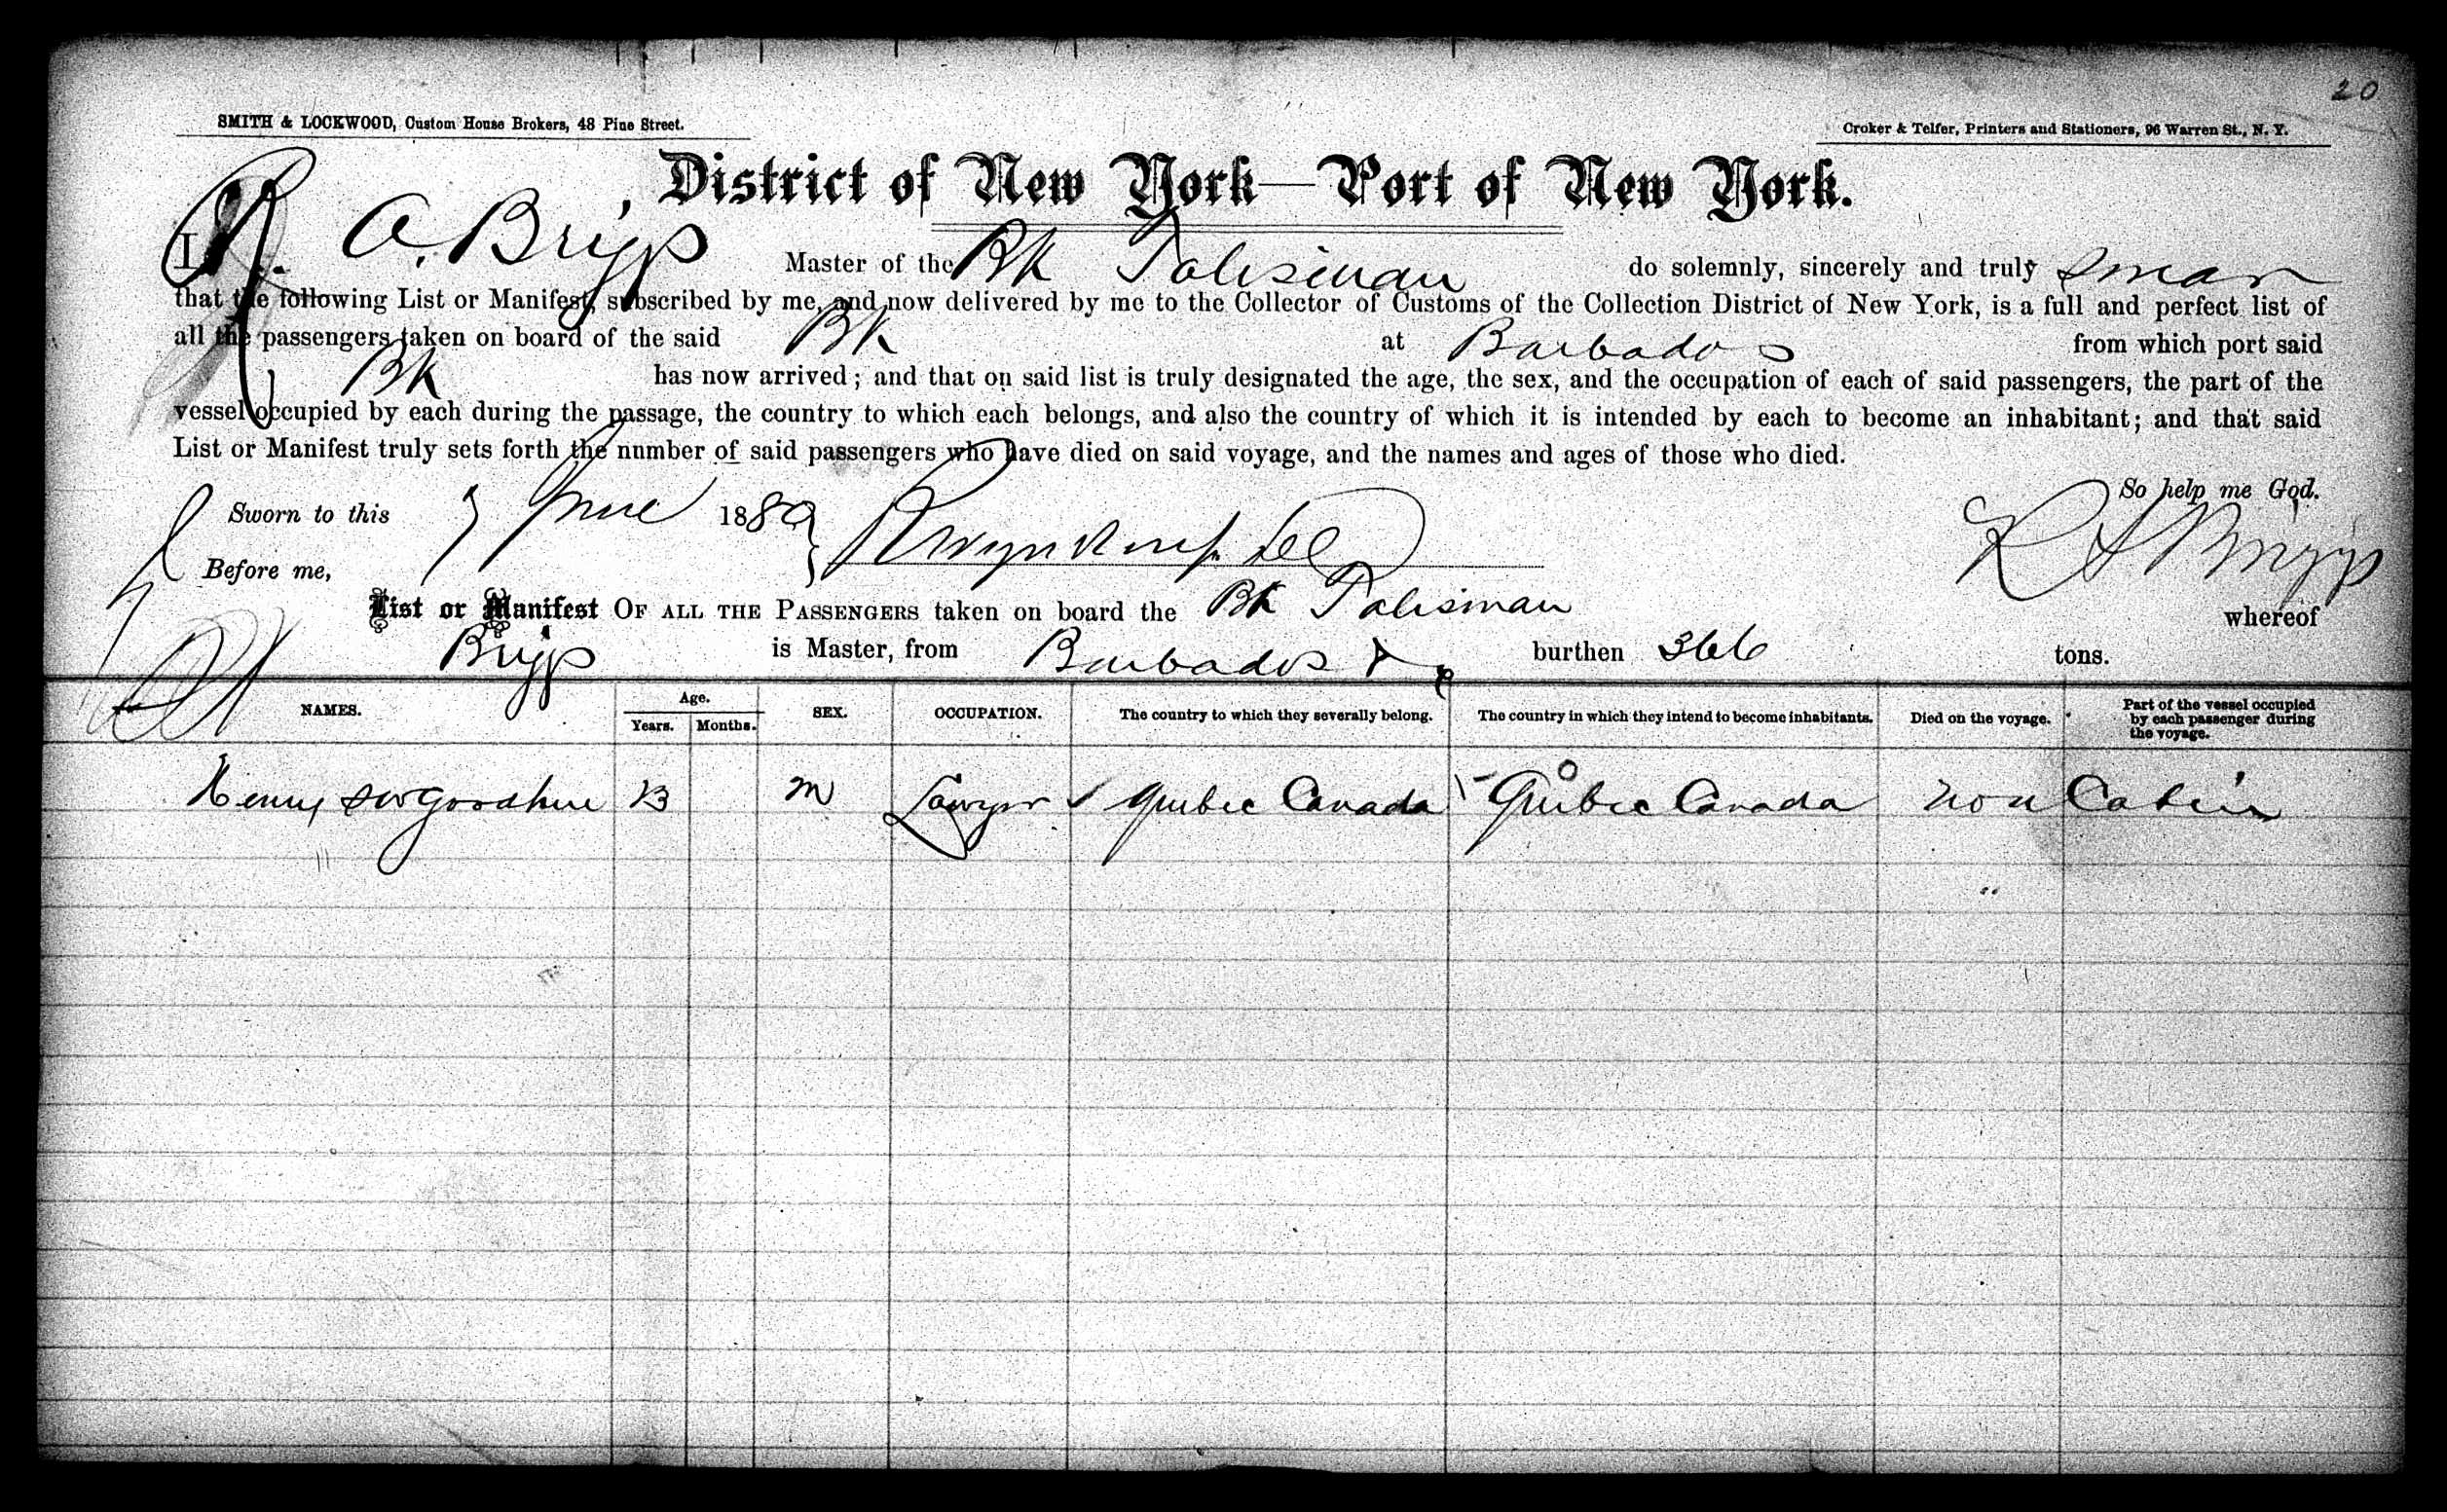 20
SMITH & LOCKWOOD, Custom House Brokers, 48 Pine Street.
Croker & Telfer, Printers and Stationers, 96 Warren St., N. Y.
District of New York—Port of New York.
I, R. A. Briggs Master of the Bk Talisman do solemnly, sincerely and truly swear
that the following List or Manifest, subscribed by me, and now delivered by me to the Collector of Customs of the Collection District of New York, is a full and perfect list of
all the passengers taken on board of the said Bk at Barbados from which port said
Bk has now arrived; and that on said list is truly designated the age, the sex, and the occupation of each of said passengers, the part of the
vessel occupied by each during the passage, the country to which each belongs, and also the country of which it is intended by each to become an inhabitant; and that said
List or Manifest truly sets forth the number of said passengers who have died on said voyage, and the names and ages of those who died.
So help me God.
Sworn to this 7 June 1889
R A Briggs
Before me,
List or Manifest OF ALL THE PASSENGERS taken on board the Bk Talisman whereof
Briggs is Master, from Barbados burthen 366 tons.
NAMES. Age. Years. Months. SEX. OCCUPATION. The country to which they severally belong. The country in which they intend to become inhabitants. Died on the voyage. Part of the vessel occupied by each passenger during the voyage.
Henry Goodhue M Lawyer Quebec Canada Quebec Canada non Cabin